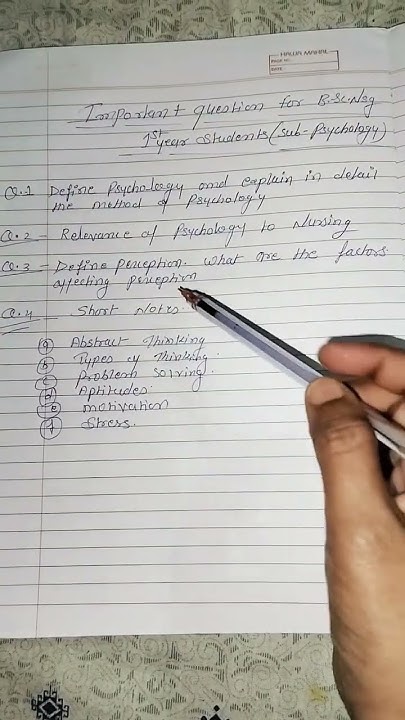 HALWA MAHAL
PAGE NO.:
DATE:
Important question for B.Sc.Nsg
1st year Students (sub-Psychology)
Q.1 Define Psychology and explain in detail
the method of Psychology
Q.2 - Relevance of Psychology to Nursing
Q.3 - Define perception. What are the factors
affecting perception
Q.4 Short Notes.
(a) Abstract Thinking
(b) Types of Thinking.
(c) Problem Solving.
(d) Aptitudes.
(e) motivation
(f) Stress.